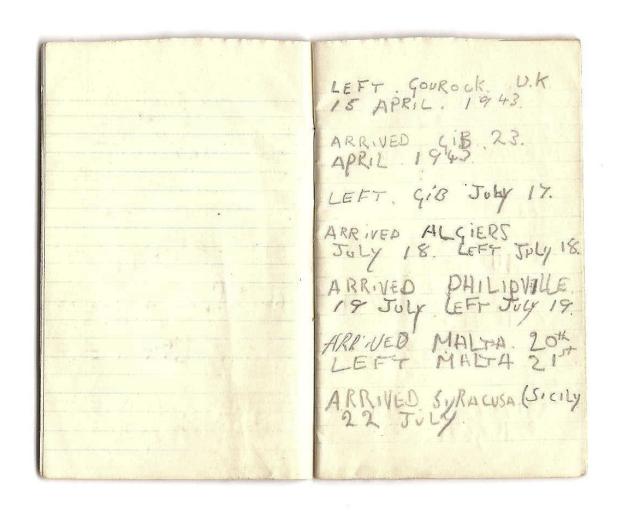 LEFT. GOUROCK. U.K
15 APRIL. 1943.
ARRIVED GIB 23.
APRIL 1943
LEFT. GIB July 17.
ARRIVED ALGIERS
JULY 18. LEFT JULY 18.
ARRIVED PHILIPVILLE
19 JULY LEFT JULY 19.
ARRIVED MALTA. 20th
LEFT MALTA 21st
ARRIVED SYRACUSA (SICILY
22 JULY.